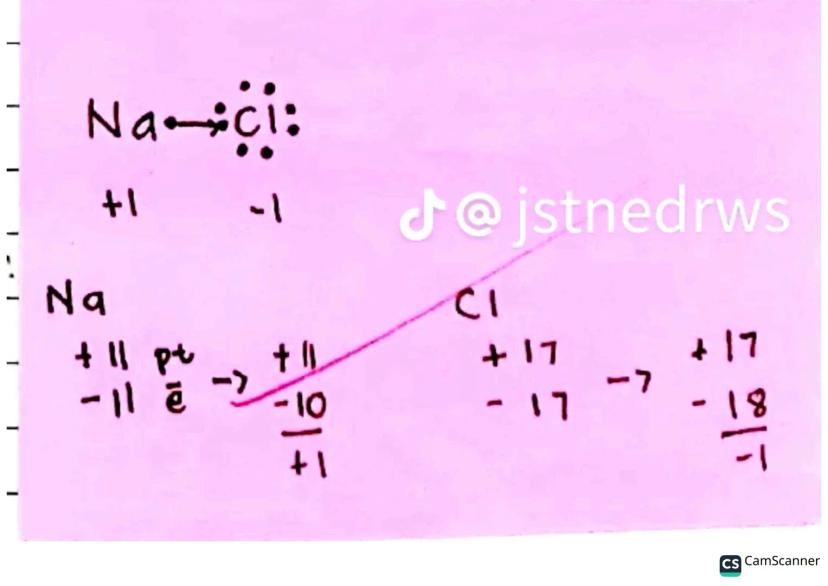 Na Cl
+1 -1
@jstnedrws
Na Cl
+11 pt -> +11 +17 -> +17
-11 ē -10 -17 -18
+1 -1
CS CamScanner